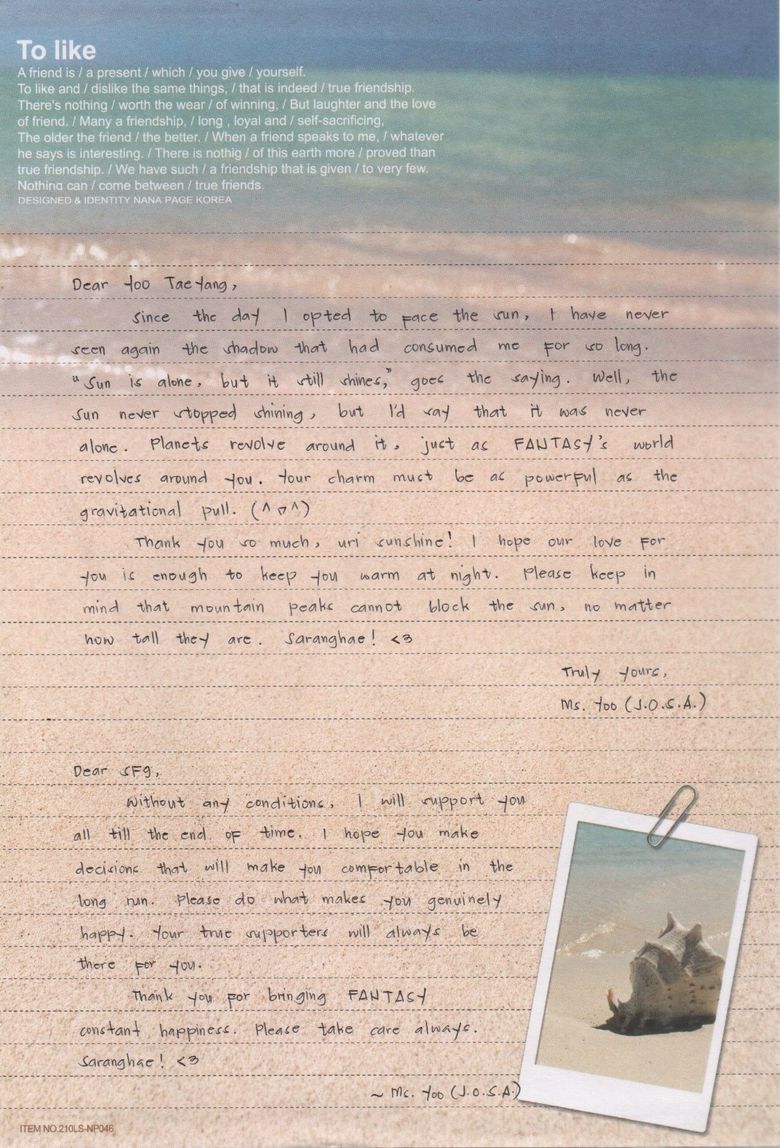 To like
A friend is / a present / which / you give / yourself.
To like and / dislike the same things, / that is indeed / true friendship.
There's nothing / worth the wear / of winning, / But laughter and the love
of friend. / Many a friendship, / long , loyal and / self-sacrificing,
The older the friend / the better. / When a friend speaks to me, / whatever
he says is interesting. / There is nothig / of this earth more / proved than
true friendship. / We have such / a friendship that is given / to very few.
Nothing can / come between / true friends.
DESIGNED & IDENTITY NANA PAGE KOREA
Dear Yoo Tae Yang,
Since the day I opted to face the sun, I have never
seen again the shadow that had consumed me for so long.
"Sun is alone, but it still shines," goes the saying. Well, the
sun never stopped shining, but I'd say that it was never
alone. Planets revolve around it, just as FANTASY's world
revolves around you. Your charm must be as powerful as the
gravitational pull. (^ ▽ ^)
Thank you so much, uri sunshine! I hope our love for
you is enough to keep you warm at night. Please keep in
mind that mountain peaks cannot block the sun, no matter
how tall they are. Saranghae! <3
Truly yours,
Ms. Yoo (J.O.S.A.)
Dear SF9,
Without any conditions, I will support you
all till the end of time. I hope you make
decisions that will make you comfortable in the
long run. Please do what makes you genuinely
happy. Your true supporters will always be
there for you.
Thank you for bringing FANTASY
constant happiness. Please take care always.
Saranghae! <3
~ Ms. Yoo (J.O.S.A.)
ITEM NO.210LS-NP046